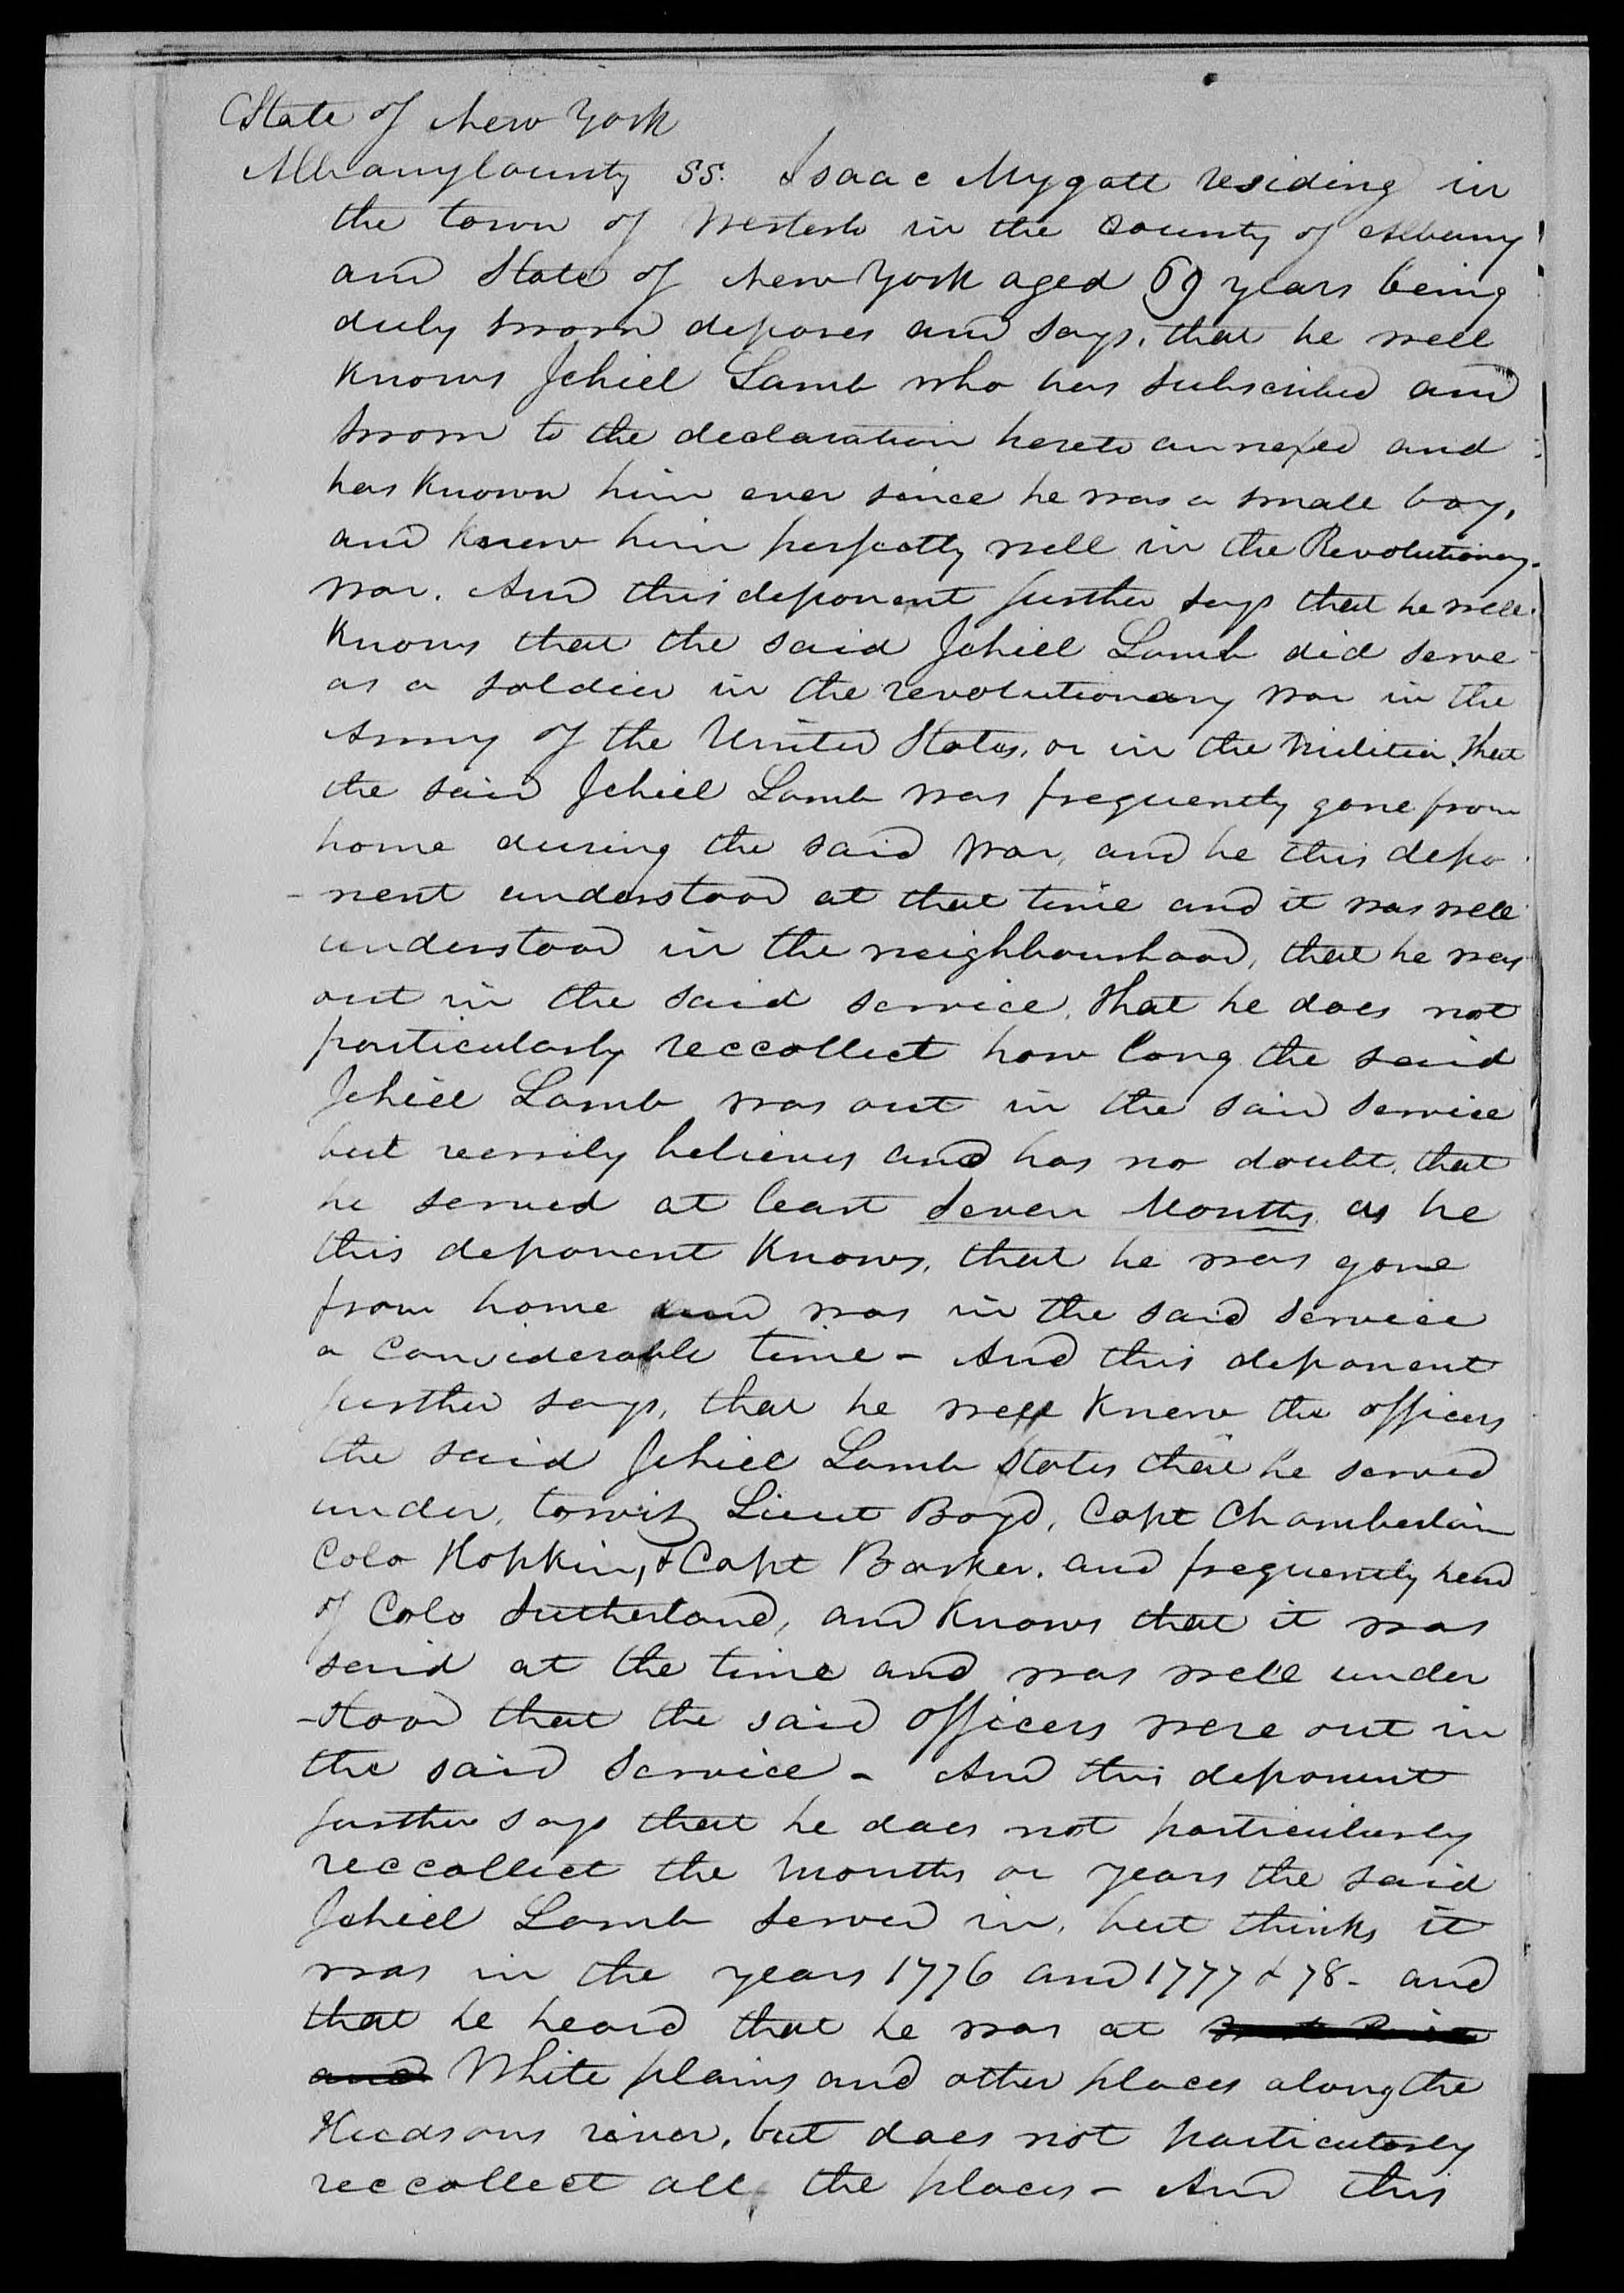 State of New York
Albany County SS. Isaac Mygatt residing in
the town of Westerlo in the County of Albany
and State of New York aged 69 years being
duly sworn deposes and says, that he well
knows Jehiel Lamb who has subscribed and
sworn to the declaration hereto annexed and
has known him ever since he was a small boy,
and knew him perfectly well in the Revolutionary
war. And this deponent further says that he well
knows that the said Jehiel Lamb did serve
as a soldier in the revolutionary war in the
Army of the United States, or in the Militia. That
the said Jehiel Lamb was frequently gone from
home during the said war, and he this depo
-nent understood at that time and it was well
understood in the neighbourhood, that he was
out in the said service. That he does not
particularly reccollect how long the said
Jehiel Lamb was out in the said service
but verrily believes and has no doubt, that
he served at least Seven Months as he
this deponent knows, that he was gone
from home and was in the said service
a considerable time - And this deponent
further says, that he well knew the officers
the said Jehiel Lamb states that he served
under, towit, Lieut Boyd, Capt Chamberlain
Colo Hopkin, & Capt Barker. and frequently heard
of Colo Sutherland, and knows that it was
said at the time and was well under
-stood that the said officers were out in
the said service - And this deponent
further says that he does not particularly
reccollect the months or years the said
Jehiel Lamb served in, but thinks it
was in the years 1776 and 1777 & 78 - and
that he heard that he was at
and White plains and other places along the
Hudsons river, but does not particularly
reccollect all the places - And this